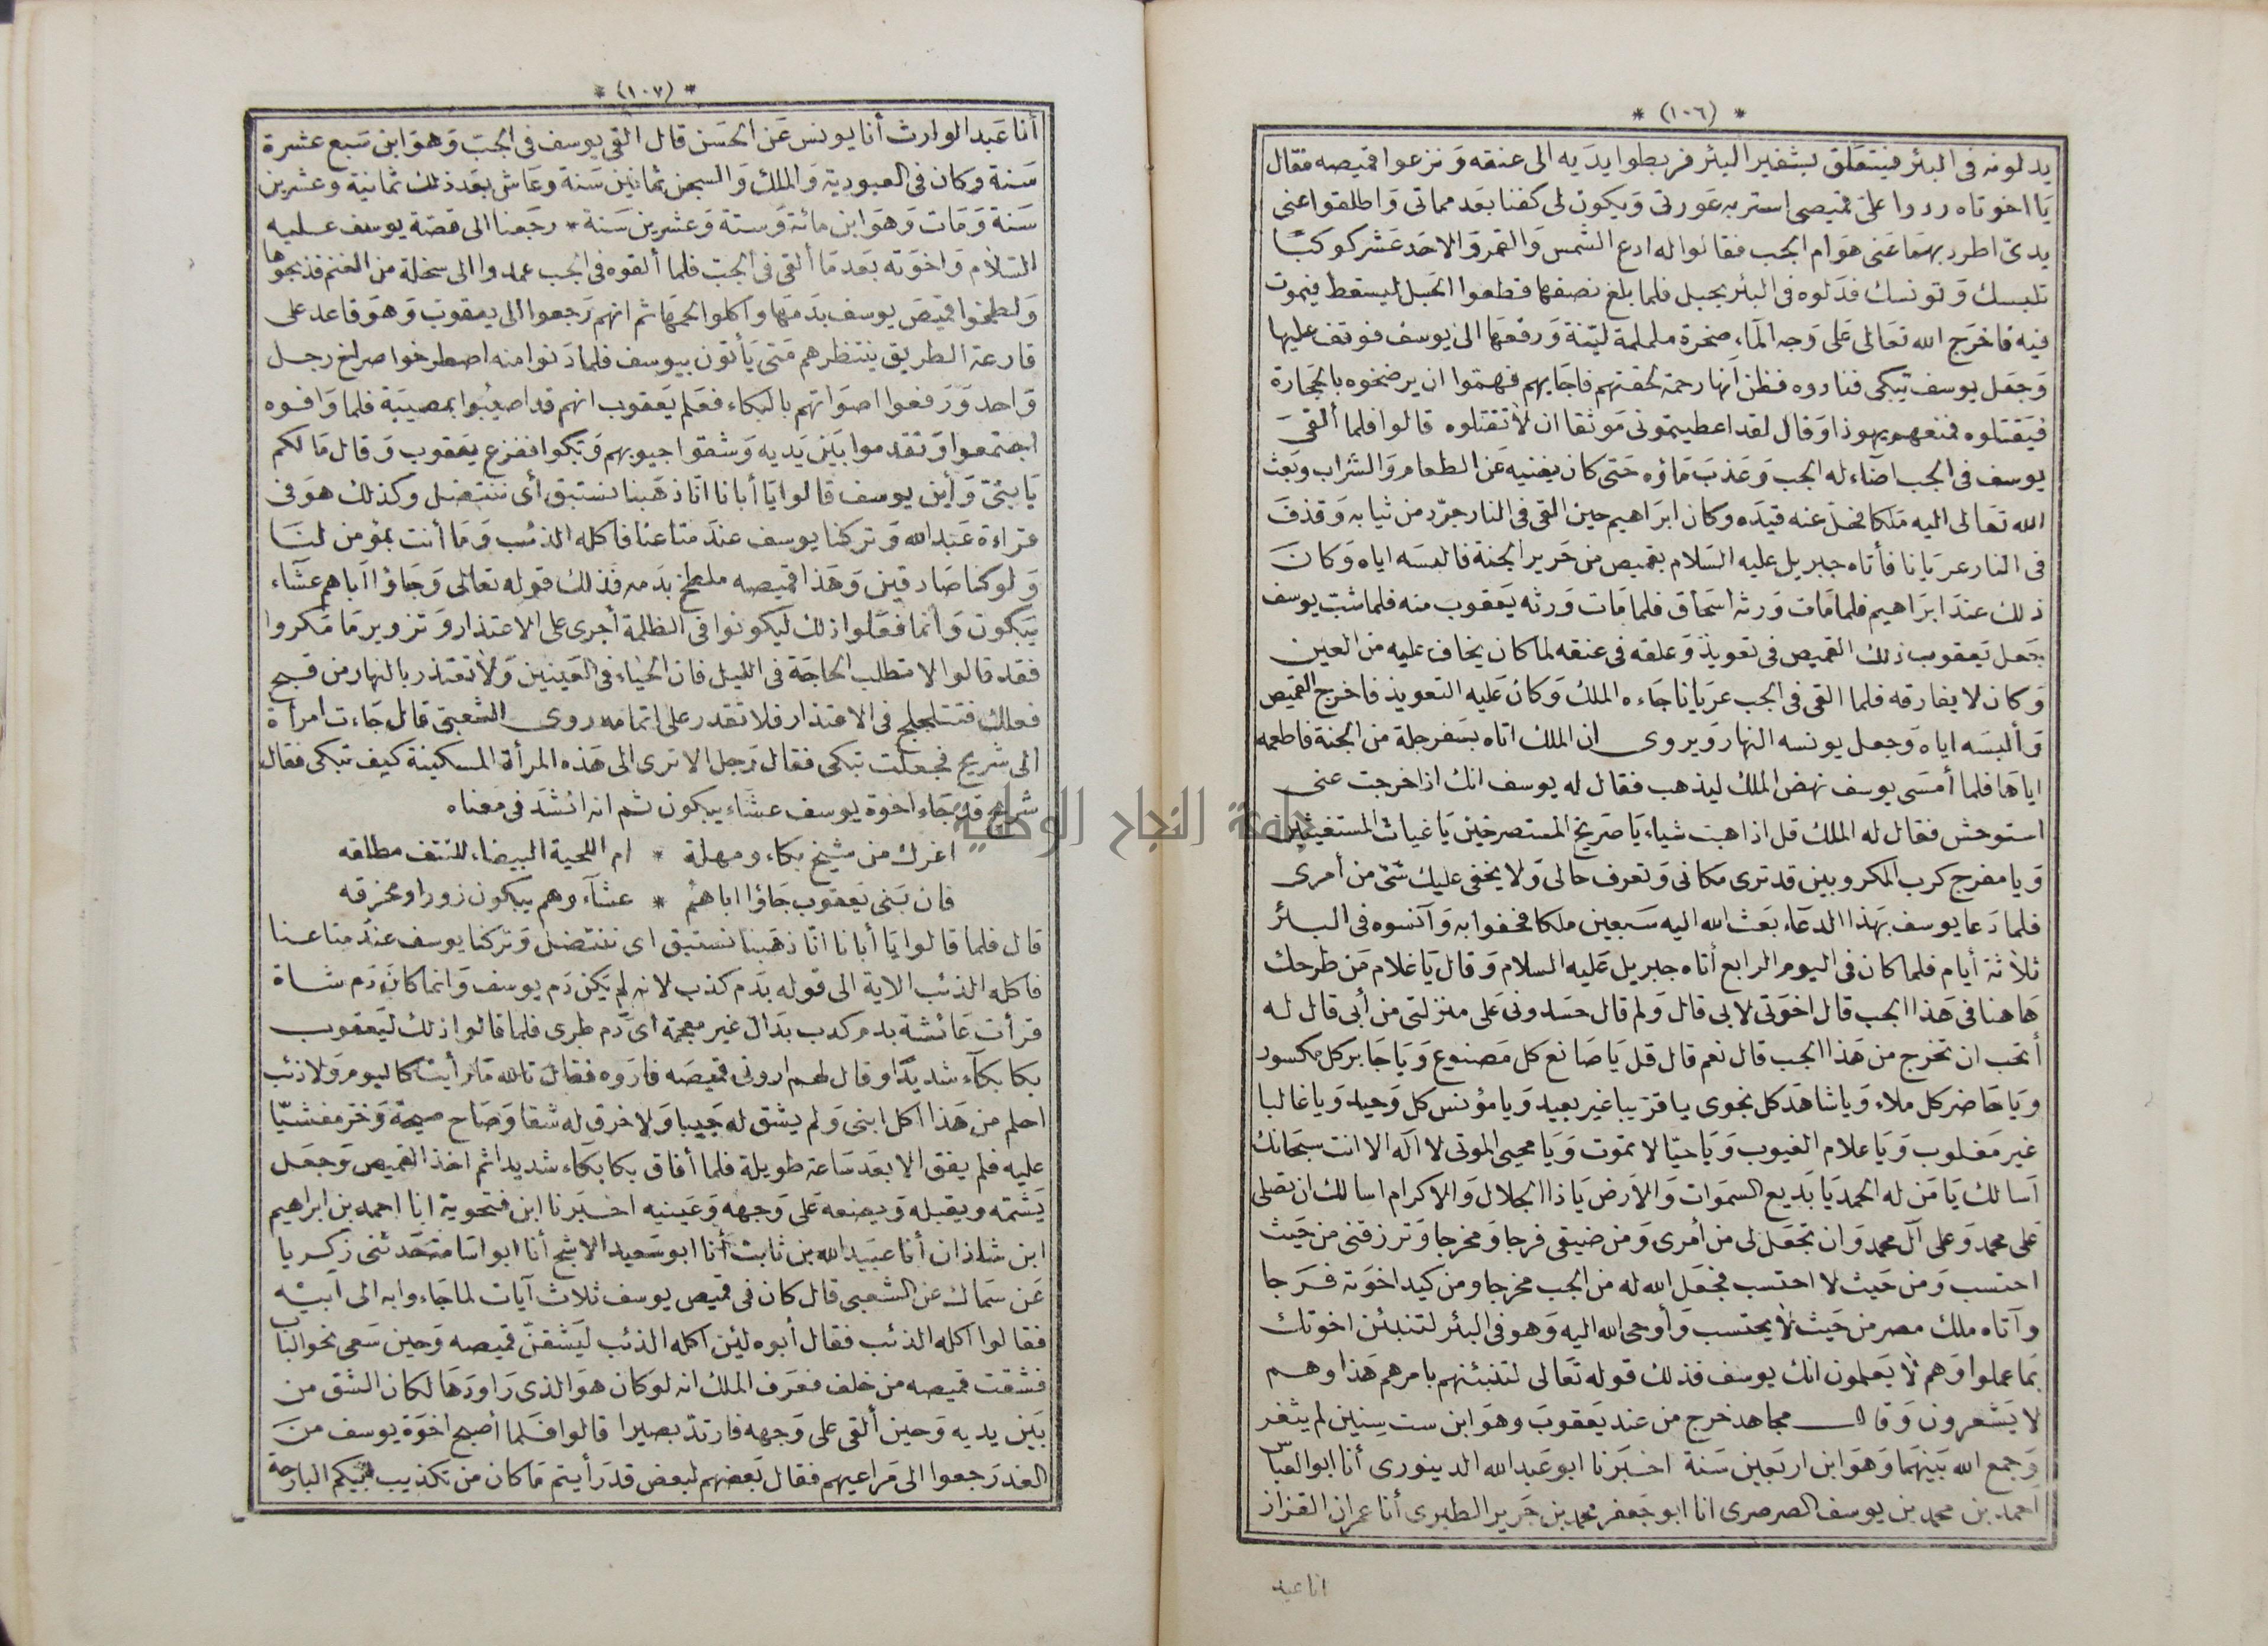 * (١٠٦) *
يدلونه فى البئر فيتعلق بشفير البئر فربطوا يديه الى عنقه ونزعوا قميصه فقال
يا اخوتاه ردوا على قميصى استر به عورتى ويكون لى كفنا بعد مماتى واطلقوا عنى
يدىّ اطرد بهما عنى هوام الجب فقالوا له ادع الشمس والقمر والاحد عشر كوكبا
تلبسك وتونسك فدلوه فى البئر بحبل فلما بلغ نصفها قطعوا الحبل ليسقط فيموت
فيه فاخرج الله تعالى على وجه الماء صخرة ململمة ليّنة ورفعها الى يوسف فوقف عليها
وجعل يوسف يبكى فنادوه فظن انها رحمة لحقتهم فاجابهم فهموا ان يرضخوه بالحجارة
فيقتلوه فمنعهم يهوذا وقال لقد اعطيتمونى موثقا ان لا تقتلوه قالوا فلما ألقى
يوسف فى الجب اضاء له الجب وعذب ماؤه حتى كان يغنيه عن الطعام والشراب وبعث
الله تعالى اليه ملكا فحل عنه قيده وكان ابراهيم حين القى فى النار جرّد من ثيابه وقذف
فى النار عريانا فأتاه جبريل عليه السلام بقميص من حرير الجنة فالبسه اياه وكان
ذلك عند ابراهيم فلما مات ورثه اسحاق فلما مات ورثه يعقوب منه فلما شب يوسف
جعل يعقوب ذلك القميص فى تعويذ وعلقه فى عنقه لما كان يخاف عليه من العين
وكان لا يفارقه فلما القى فى الجب عريانا جاءه الملك وكان عليه التعويذ فاخرج القميص
وألبسه اياه وجعل يونسه النهار ويروى ان الملك اتاه بسفرجلة من الجنة فاطعمه
اياها فلما أمسى يوسف نهض الملك ليذهب فقال له يوسف انك اذا خرجت عنى
استوحش فقال له الملك قل اذا هبت شياء يا صريخ المستصرخين يا غياث المستغيثين
ويا مفرج كرب المكروبين قد ترى مكانى وتعرف حالى ولا يخفى عليك شئ من أمرى
فلما دعا يوسف بهذا الدعاء بعث الله اليه سبعين ملكا فحفوا به وآنسوه فى البئر
ثلاثة أيام فلما كان فى اليوم الرابع أتاه جبريل عليه السلام وقال يا غلام من طرحك
هاهنا فى هذا الجب قال اخوتى لابى قال ولم قال حسدونى على منزلتى من أبى قال له
أتحب ان تخرج من هذا الجب قال نعم قال قل يا صانع كل مصنوع ويا جابر كل مكسور
ويا حاضر كل ملاء ويا شاهد كل نجوى يا قريبا غير بعيد ويا مؤنس كل وحيد ويا غالبا
غير مغلوب ويا علام الغيوب ويا حيا لا يموت ويا محيى الموتى لا اله الا انت سبحانك
اسالك يا من له الحمد يا بديع السموات والارض يا ذا الجلال والاكرام اسالك ان تصلى
على محمد وعلى آل محمد وان تجعل لى من أمرى ومن ضيقى فرجا ومخرجا وترزقنى من حيث
احتسب ومن حيث لا احتسب فجعل الله له من الجب مخرجا ومن كيد اخوته فرجا
وآتاه ملك مصر من حيث لا يحتسب وأوحى الله اليه وهو فى البئر لتنبئن اخوتك
بما عملوا وهم لا يعلمون انك يوسف فذلك قوله تعالى لتنبئنهم بامرهم هذا وهم
لا يشعرون وقال مجاهد خرج من عند يعقوب وهو ابن ست سنين لم يثغر
وجمع الله بينهما وهو ابن اربعين سنة اخبرنا ابو عبد الله الدينورى أنا ابو العباس
احمد بن محمد بن يوسف الصرصرى انا ابو جعفر محمد بن جرير الطبرى أنا عمران القزاز
انا عبد
* (١٠٧) *
أنا عبد الوارث أنا يونس عن الحسن قال القى يوسف فى الجب وهو ابن سبع عشرة
سنة وكان فى العبودية والملك والسجن ثمانين سنة وعاش بعد ذلك ثمانية وعشرين
سنة ومات وهو ابن مائة وستة وعشرين سنة * رجعنا الى قصة يوسف عليه
السلام واخوته بعد ما ألقى فى الجب فلما ألقوه فى الجب عمدوا الى سخلة من الغنم فذبحوها
ولطخوا قميص يوسف بدمها واكلوا لحمها ثم انهم رجعوا الى يعقوب وهو قاعد على
قارعة الطريق ينتظرهم متى يأتون بيوسف فلما دنوا منه اصطرخوا صراخ رجل
واحد ورفعوا اصواتهم بالبكاء فعلم يعقوب انهم قد اصيبوا بمصيبة فلما وافوه
اجتمعوا وتقدموا بين يديه وشقوا جيوبهم وبكوا ففزع يعقوب وقال ما لكم
يا بنىّ وأين يوسف قالوا يا أبانا انا ذهبنا نستبق أى ننتضل وكذلك هو فى
قراءة عبد الله وتركنا يوسف عند متاعنا فاكله الذئب وما أنت بمؤمن لنا
ولو كنا صادقين وهذا قميصه ملطخ بدمه فذلك قوله تعالى وجاؤا اباهم عشاء
يبكون وانما فعلوا ذلك ليكونوا فى الظلمة أجرى على الاعتذار وتزوير ما مكروا
فقد قالوا لا تطلب الحاجة فى الليل فان الحياء فى العينين ولا تعتذر بالنهار من قبيح
فعلك فتتلجلج فى الاعتذار فلا تقدر على اتمامه روى الشعبى قال جاءت امرأة
الى شريح فجعلت تبكى فقال رجل الا ترى الى هذه المرأة المسكينة كيف تبكى فقال
شريح قد جاء اخوة يوسف عشاء يبكون ثم انه انشد فى معناه
اغرك من شيخ بكاء ومهلة * ام اللحية البيضاء للنتف مطلقه
فان بنى يعقوب جاؤا اباهم * عشآء وهم يبكون زورا ومخرقه
قال فلما قالوا يا أبانا انّا ذهبنا نستبق اى ننتضل وتركنا يوسف عند متاعنا
فاكله الذئب الاية الى قوله بدم كذب لانه لم يكن دم يوسف وانما كان دم شاة
قرأت عائشة بدم كدب بدال غير معجمة أى دم طرى فلما قالوا ذلك ليعقوب
بكا بكآء شديدا وقال لهم ارونى قميصه فاروه فقال تالله ما رأيت كاليوم ولا ذئب
احلم من هذا اكل ابنى ولم يشق له جيبا ولا خرق له شقا وصاح صيحة وخر مغشيّا
عليه فلم يفق الا بعد ساعة طويلة فلما أفاق بكا بكاء شديدا ثم اخذ القميص وجعل
يشمه ويقبله ويضعه على وجهه وعينيه اخبرنا ابن فتحوية انا احمد بن ابراهيم
ابن شاذان أنا عبيد الله بن ثابت أنا ابو سعيد الاشج أنا ابو اسامة حدثنى زكريا
عن سماك عن الشعبى قال كان فى قميص يوسف ثلاث آيات لما جاءوا به الى ابيه
فقالوا اكله الذئب فقال أبوه لئن اكله الذئب ليشقنّ قميصه وحين سعى نحو الباب
فشقت قميصه من خلف فعرف الملك انه لو كان هو الذى راودها لكان الشق من
بين يديه وحين ألقى على وجهه فارتدّ بصيرا قالوا فلما أصبح اخوة يوسف من
الغد رجعوا الى مراعيهم فقال بعضهم لبعض قد رأيتم ما كان من تكذيب ابيكم البارحة
جامعة النجاح الوطنية